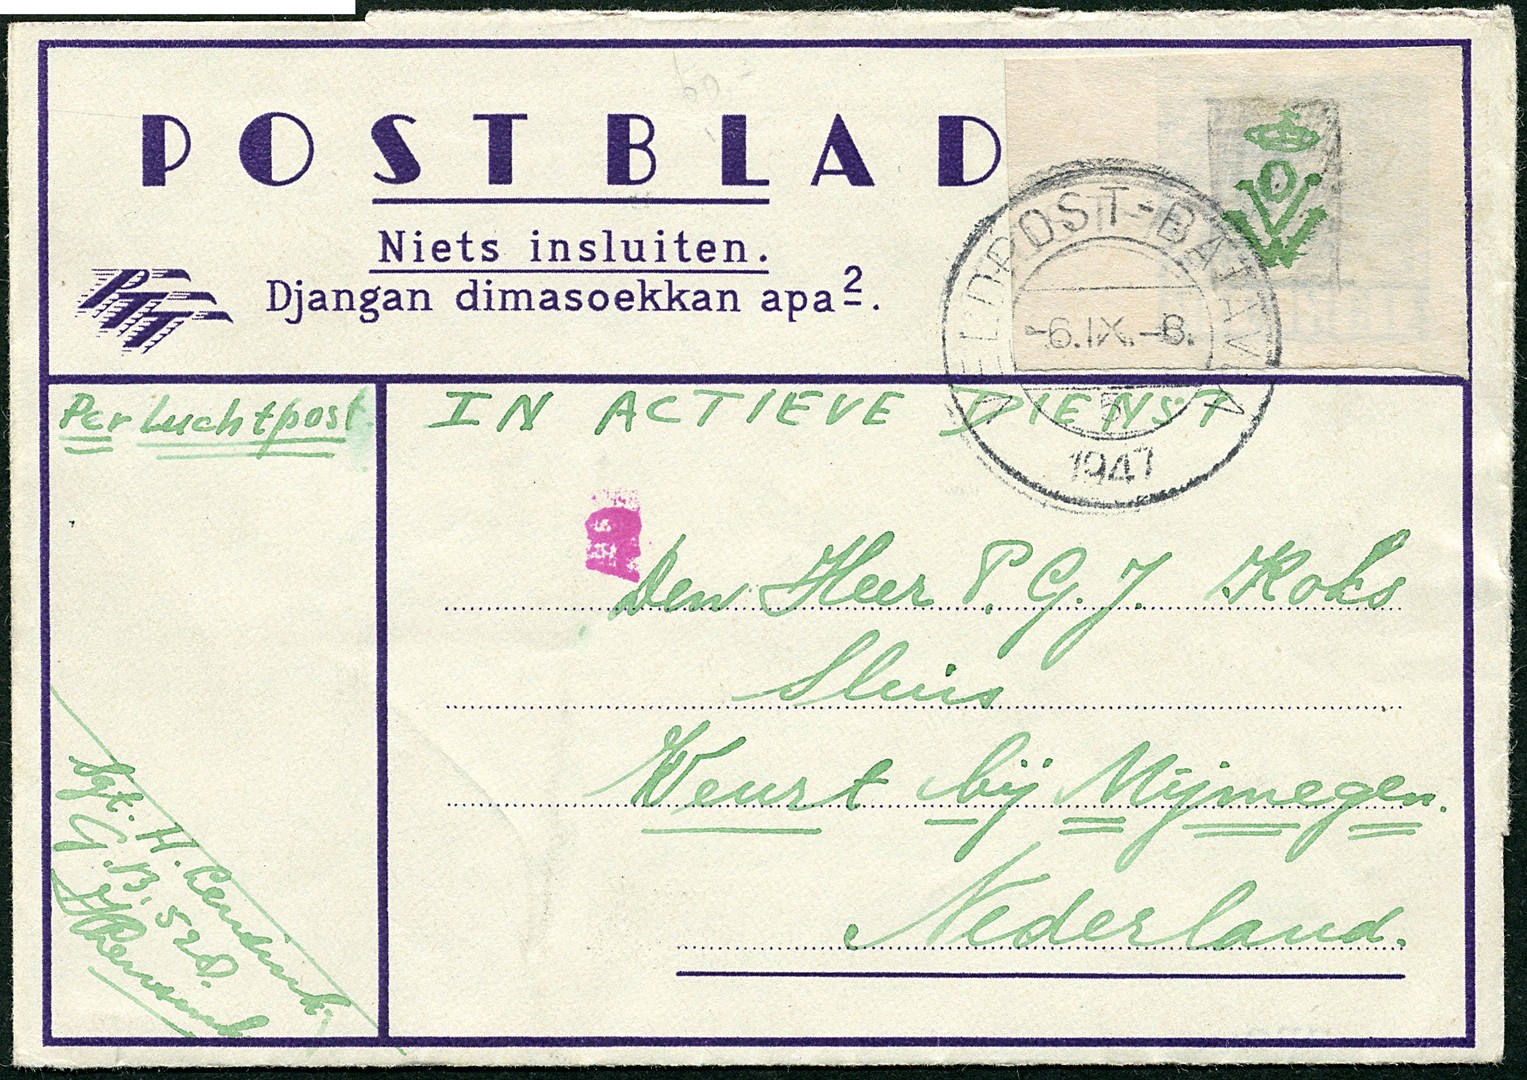 60,-
POSTBLAD
Niets insluiten.
Djangan dimasoekkan apa².
PTT
VELDPOST-BATAVIA
-6.IX.-8.
5
1947
Per Luchtpost.
IN ACTIEVE DIENST
Den Heer P. G. J. Koks
Sluis
Weurt bij Nijmegen.
Nederland.
Sgt. H.
G.B. 528.